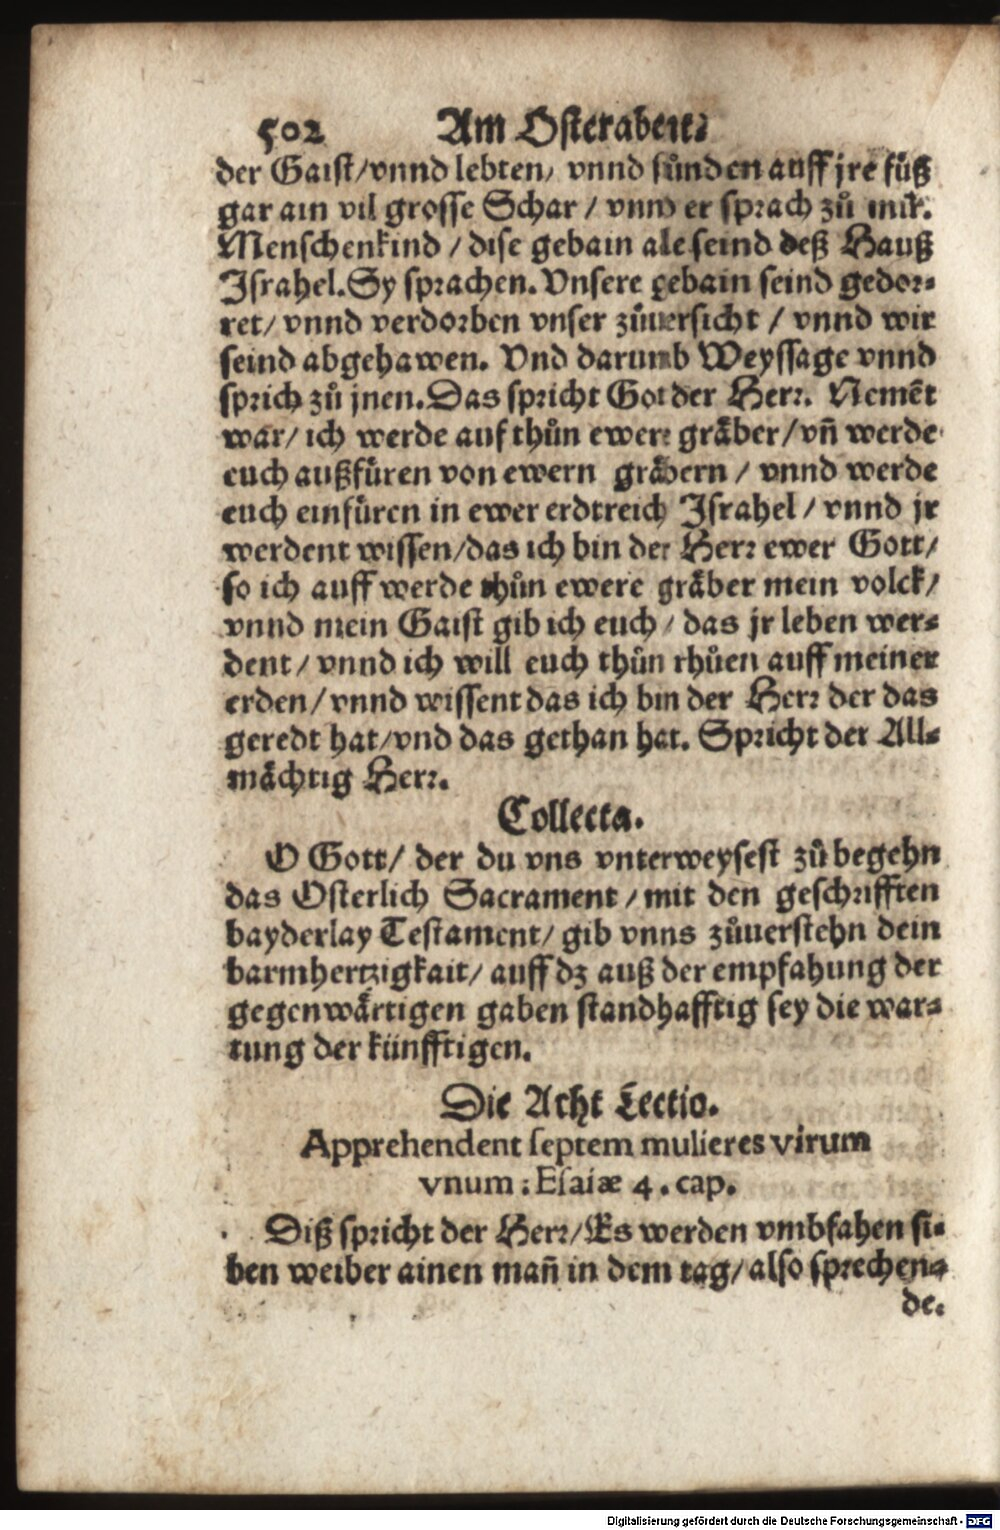 502 Am Osterabent.
der Gaist/vnnd lebten/ vnnd stůnden auff jre fůß
gar ain vil grosse Schar / vnnd er sprach zů mir.
Menschenkind / dise gebain alle seind deß Hauß
Israhel. Sy sprachen. Vnsere gebain seind gedor⸗
ret/ vnnd verdorben vnser zůuersicht / vnnd wir
seind abgehawen. Vnd darumb Weyssage vnnd
sprich zů jnen. Das spricht Got der Herr. Nemēt
war/ ich werde auf thůn ewere gräber/ vn̄ werde
euch außfüren von ewern gräbern / vnnd werde
euch einfüren in ewer erdtreich Israhel / vnnd jr
werdent wissen/das ich bin der Herr ewer Gott/
so ich auff werde thůn ewere gräber mein volck/
vnnd mein Gaist gib ich euch / das jr leben wer⸗
dent / vnnd ich will euch thůn rhůen auff meiner
erden / vnnd wissent das ich bin der Herr der das
geredt hat/vnd das gethan hat. Spricht der All⸗
mächtig Herr.
Collecta.
O Gott/ der du vns vnterweysest zů begehn
das Osterlich Sacrament / mit den geschrifften
bayderlay Testament/ gib vnns zůuerstehn dein
barmhertzigkait/ auff dz auß der empfahung der
gegenwärtigen gaben standhafftig sey die war⸗
tung der künfftigen.
Die Acht Lectio.
Apprehendent septem mulieres virum
vnum : Esaiæ 4. cap.
Diß spricht der Herr/ Es werden vmbfahen si⸗
ben weiber ainen man̄ in dem tag/ also sprechen⸗
de.
Digitalisierung gefördert durch die Deutsche Forschungsgemeinschaft - DFG